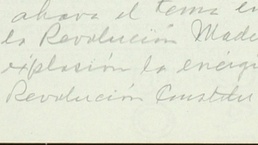 ahora el tema en
la Revolución Made
explosión la energí
Revolución Constitu